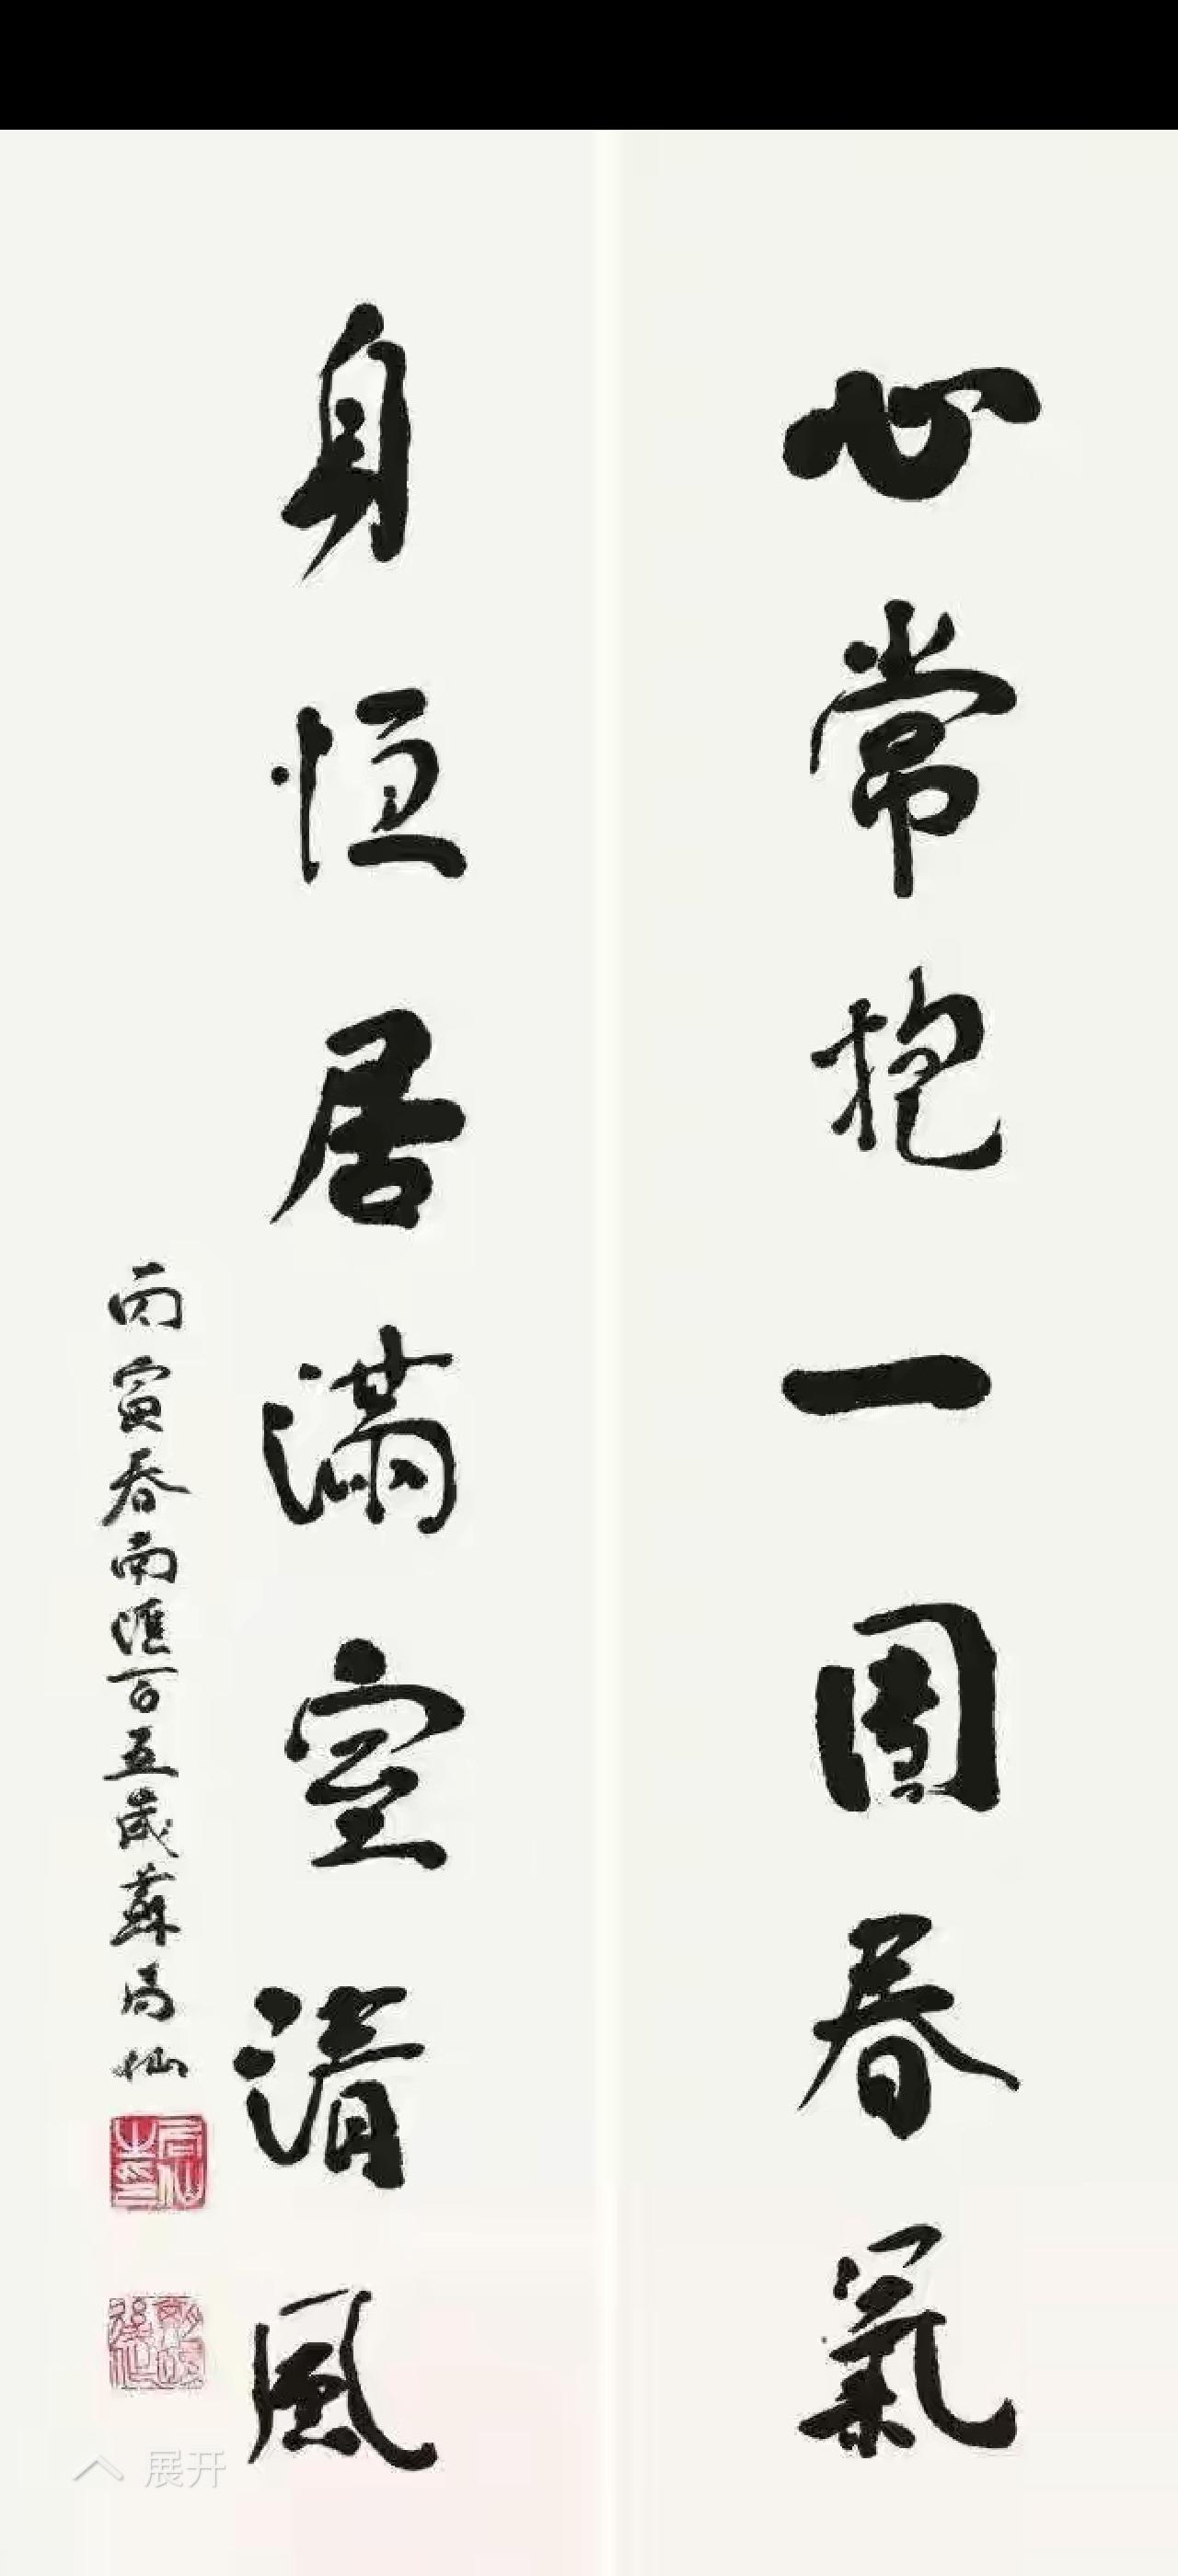 心常抱一團春氣
身恒居滿室清風
丙寅春南匯百五歲蘇局仙
局仙之印
展开